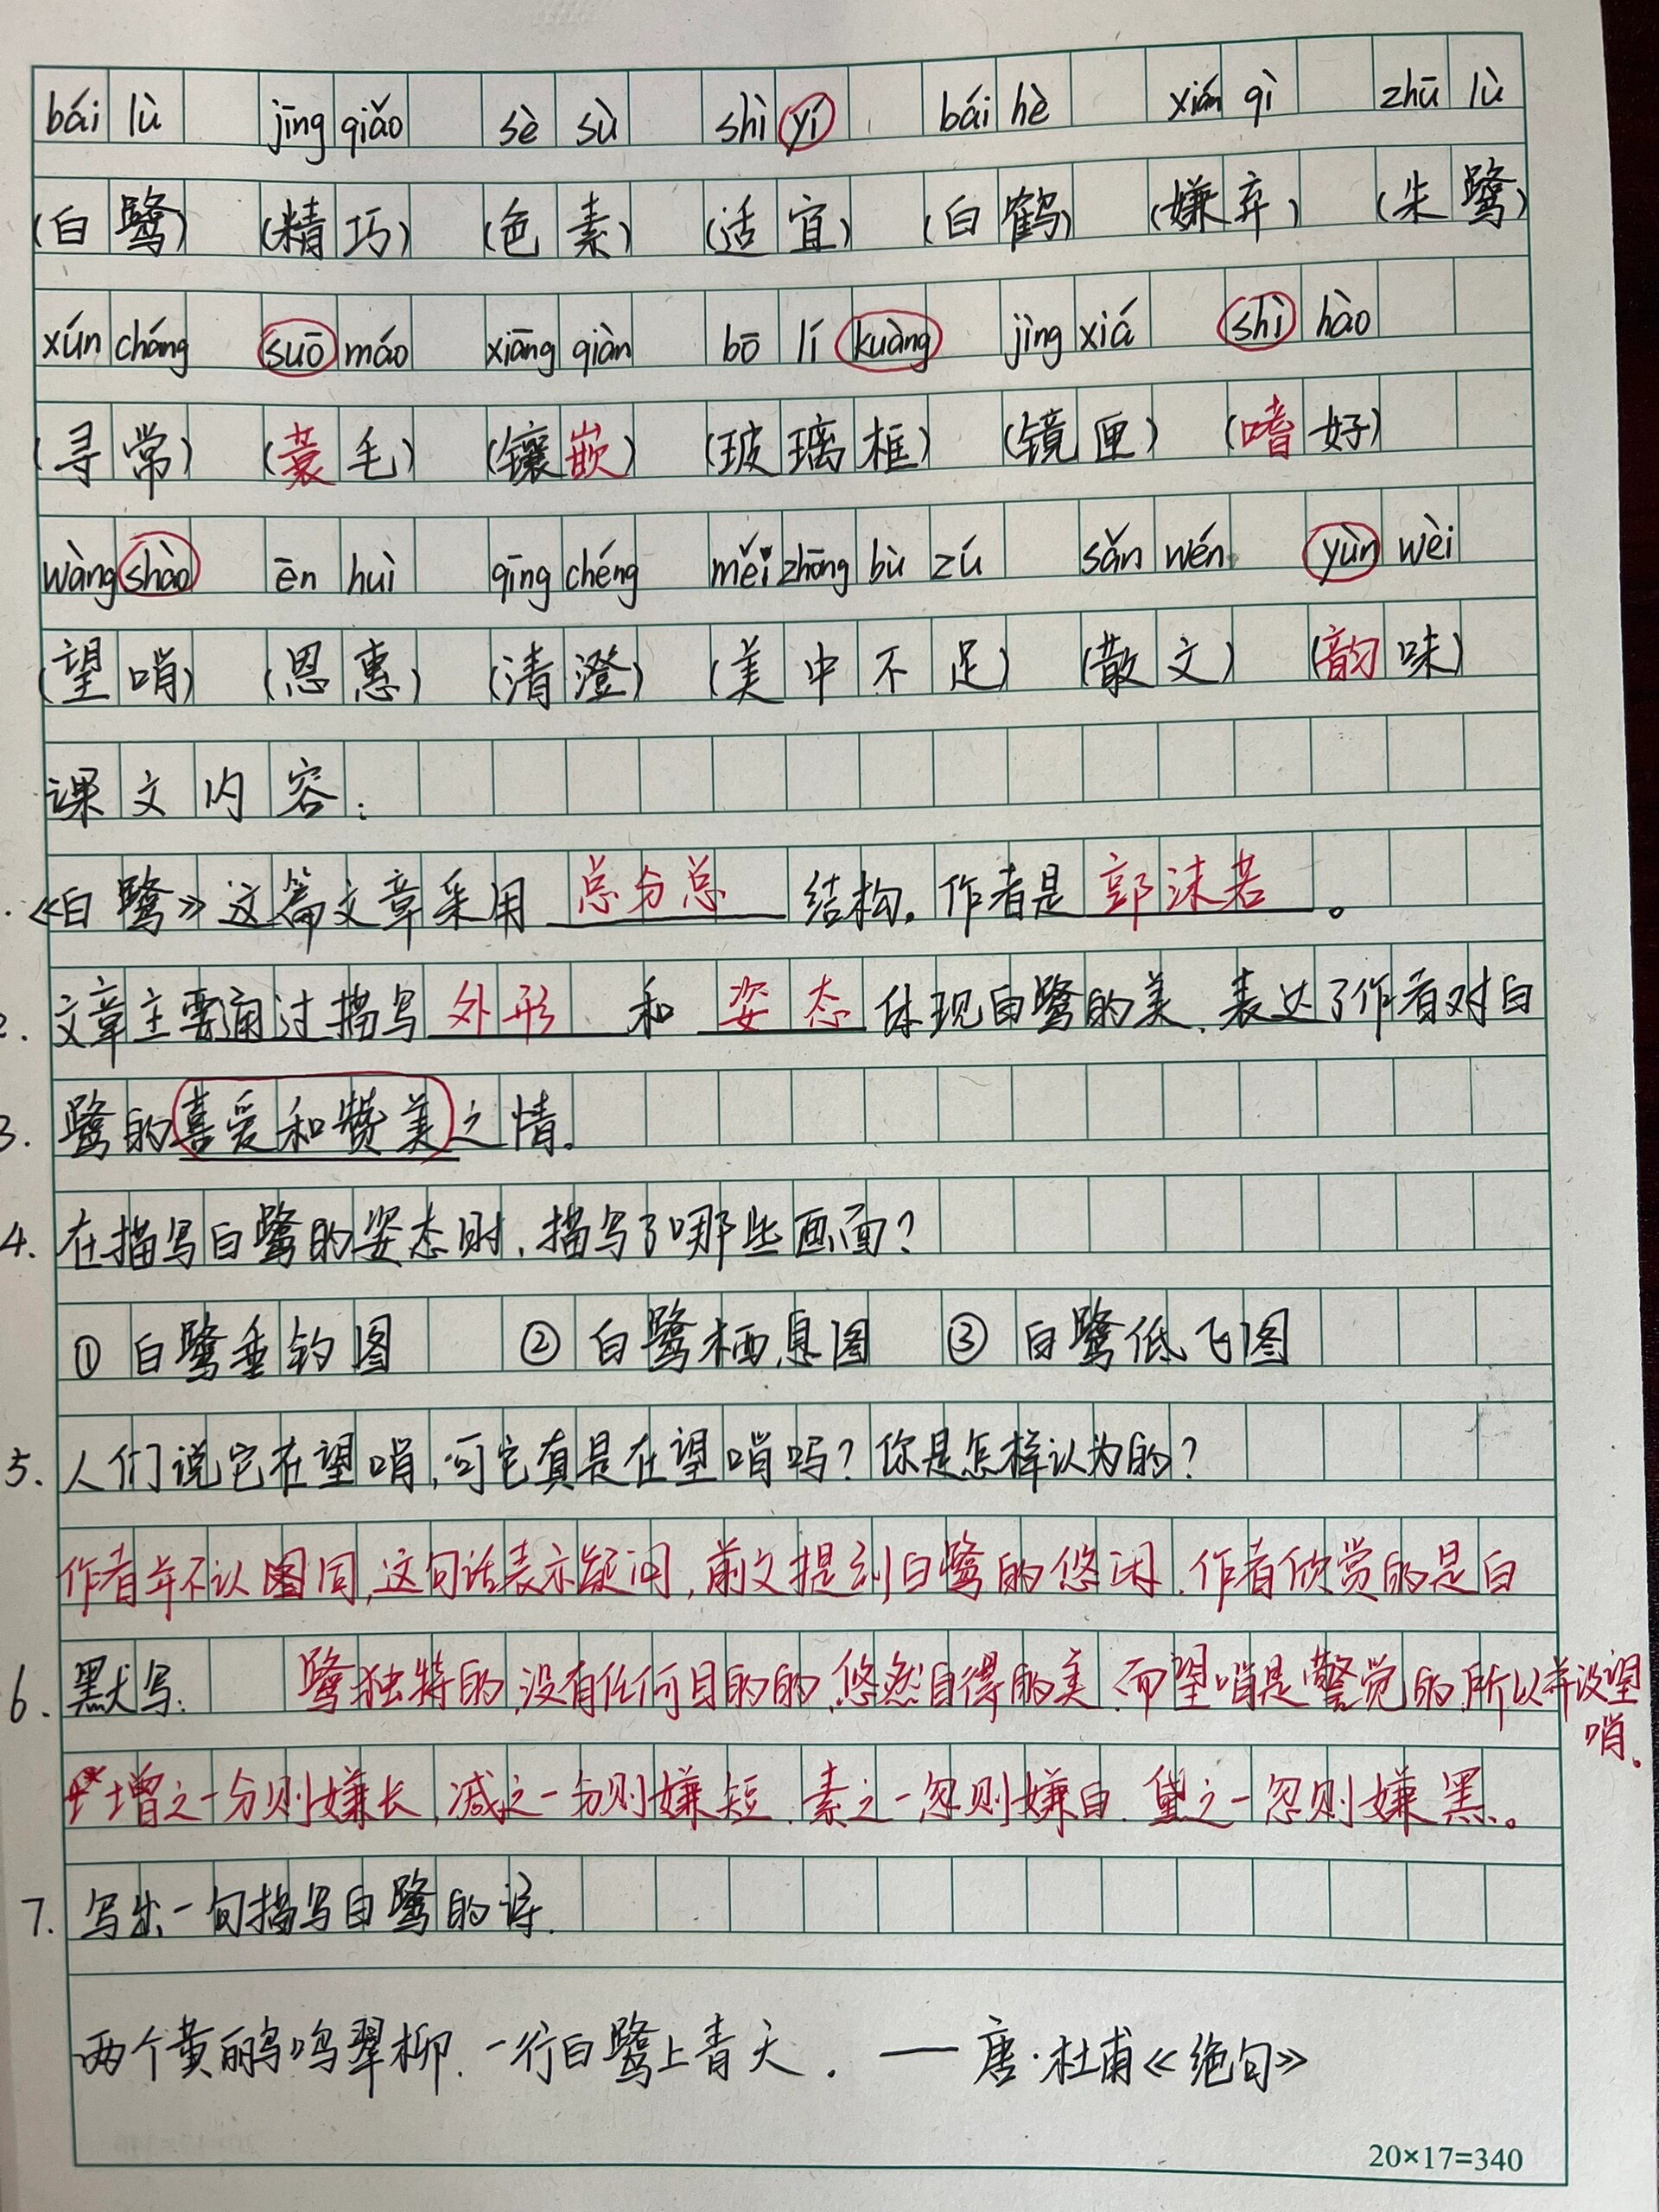 bái lù jīng qiǎo sè sù shì yí bái hè xián qì zhū lù
(白鹭) (精巧) (色素) (适宜) (白鹤) (嫌弃) (朱鹭)
xún cháng suō máo xiāng qiàn bō lí kuàng jìng xiá shì hào
(寻常) (蓑毛) (镶嵌) (玻璃框) (镜匣) (嗜好)
wàng shào ēn huì qīng chéng měi zhōng bù zú sǎn wén yùn wèi
(望哨) (恩惠) (清澄) (美中不足) (散文) (韵味)
课文内容:
《白鹭》这篇文章采用 总分总 结构,作者是 郭沫若 。
2. 文章主要通过描写 外形 和 姿态 体现白鹭的美,表达了作者对白
3. 鹭的喜爱和赞美之情。
4. 在描写白鹭的姿态时,描写了哪些画面?
① 白鹭垂钓图 ② 白鹭栖息图 ③ 白鹭低飞图
5. 人们说它在望哨,可它真是在望哨吗?你是怎样认为的?
作者并不认同,这句话表示疑问,前文提到白鹭的悠闲,作者欣赏的是白
6. 默写: 鹭独特的,没有任何目的的,悠然自得的美,而望哨是警觉的,所以并没望
哨。
增之一分则嫌长,减之一分则嫌短,素之一忽则嫌白,黛之一忽则嫌黑。
7. 写出一句描写白鹭的诗.
两个黄鹂鸣翠柳,一行白鹭上青天. —— 唐·杜甫《绝句》
20×17=340